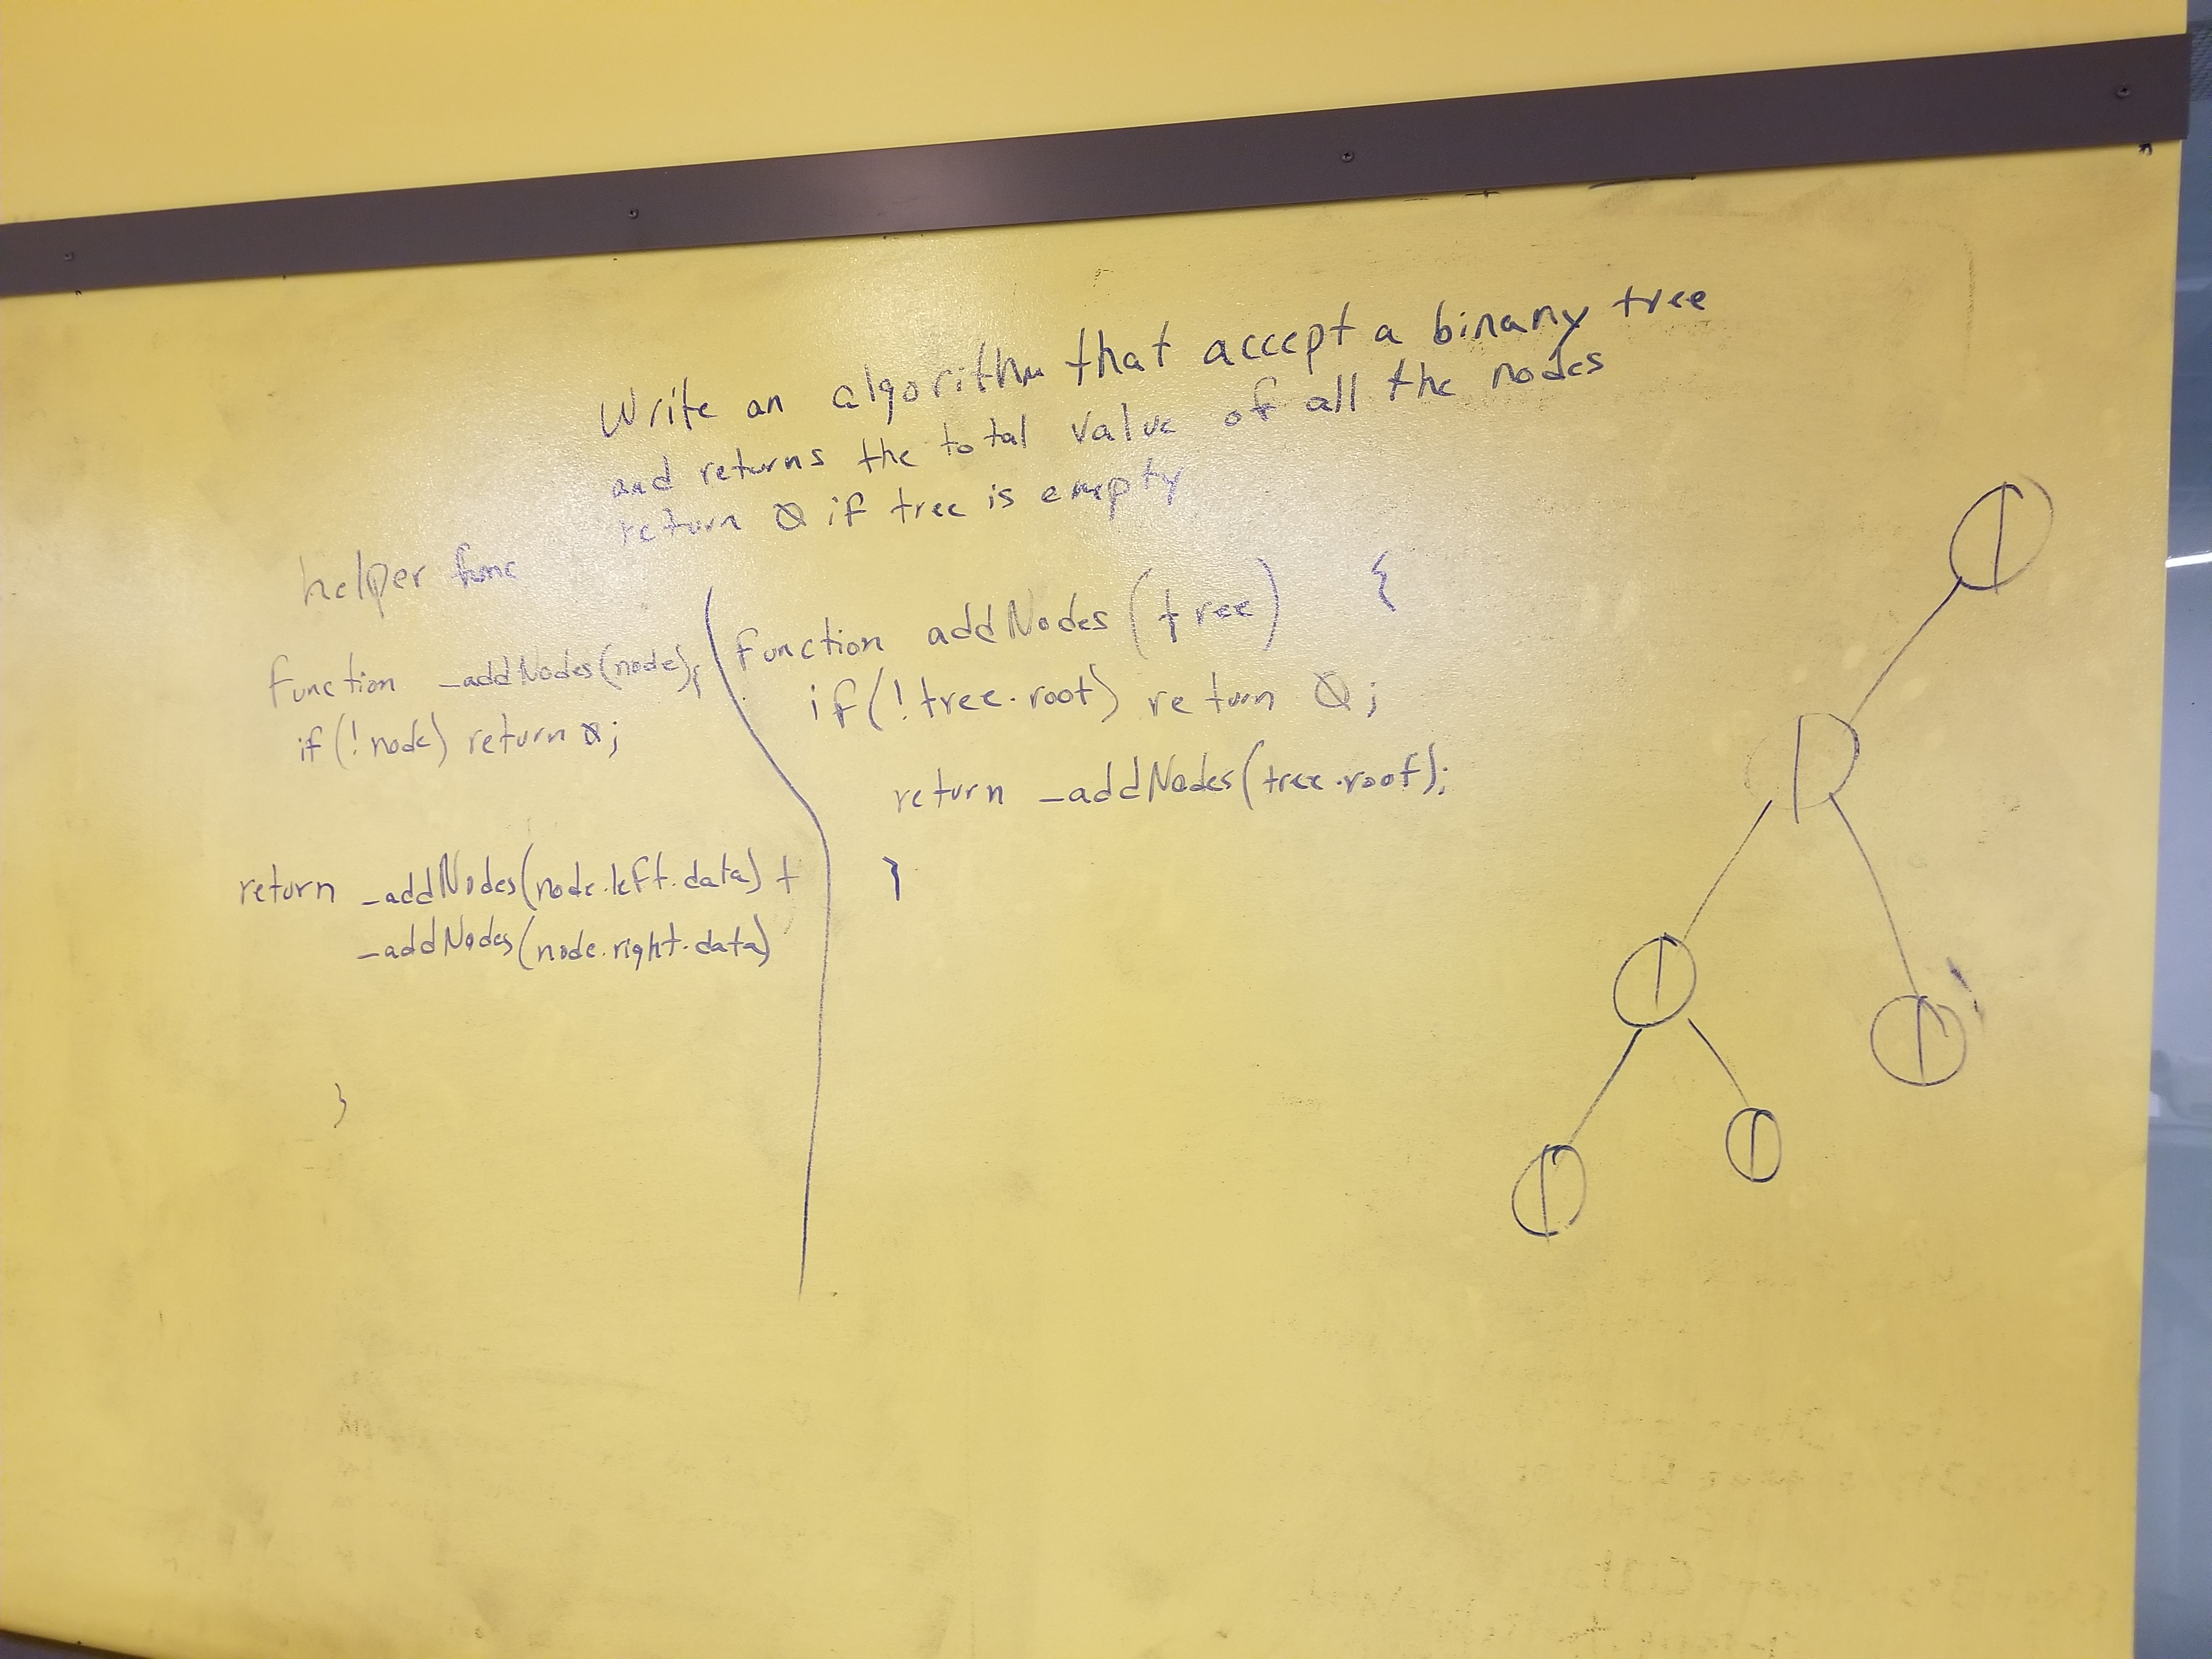 Write an algorithm that accept a binany tree
and returns the total value of all the nodes
return 0 if tree is empty
helper func
function _addNodes(node){
if(!node) return 0;
return _addNodes(node.left.data) +
_addNodes(node.right.data)
}
function addNodes(tree) {
if(!tree.root) return 0;
return _addNodes(tree.root);
}
1
1
1
1
1
1